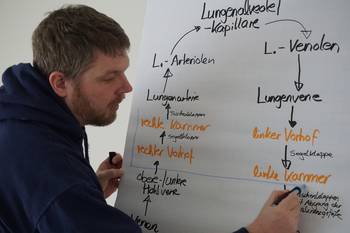 Lungenalveolen
-Kapillare
L.-Arteriolen
L.-Venolen
Lungenarterie
Lungenvene
Taschenklappe
rechte Kammer
Segelklappe
linker Vorhof
rechter Vorhof
Segelklappe
linke Kammer
obere/untere
Hohlvene
Taschenklappe
Venen